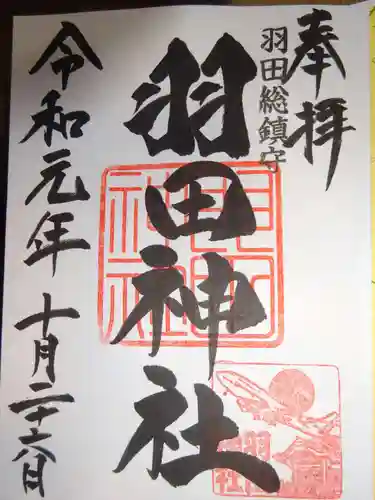 奉拝
羽田総鎮守
羽田神社
令和元年十月二十六日
羽田
神社